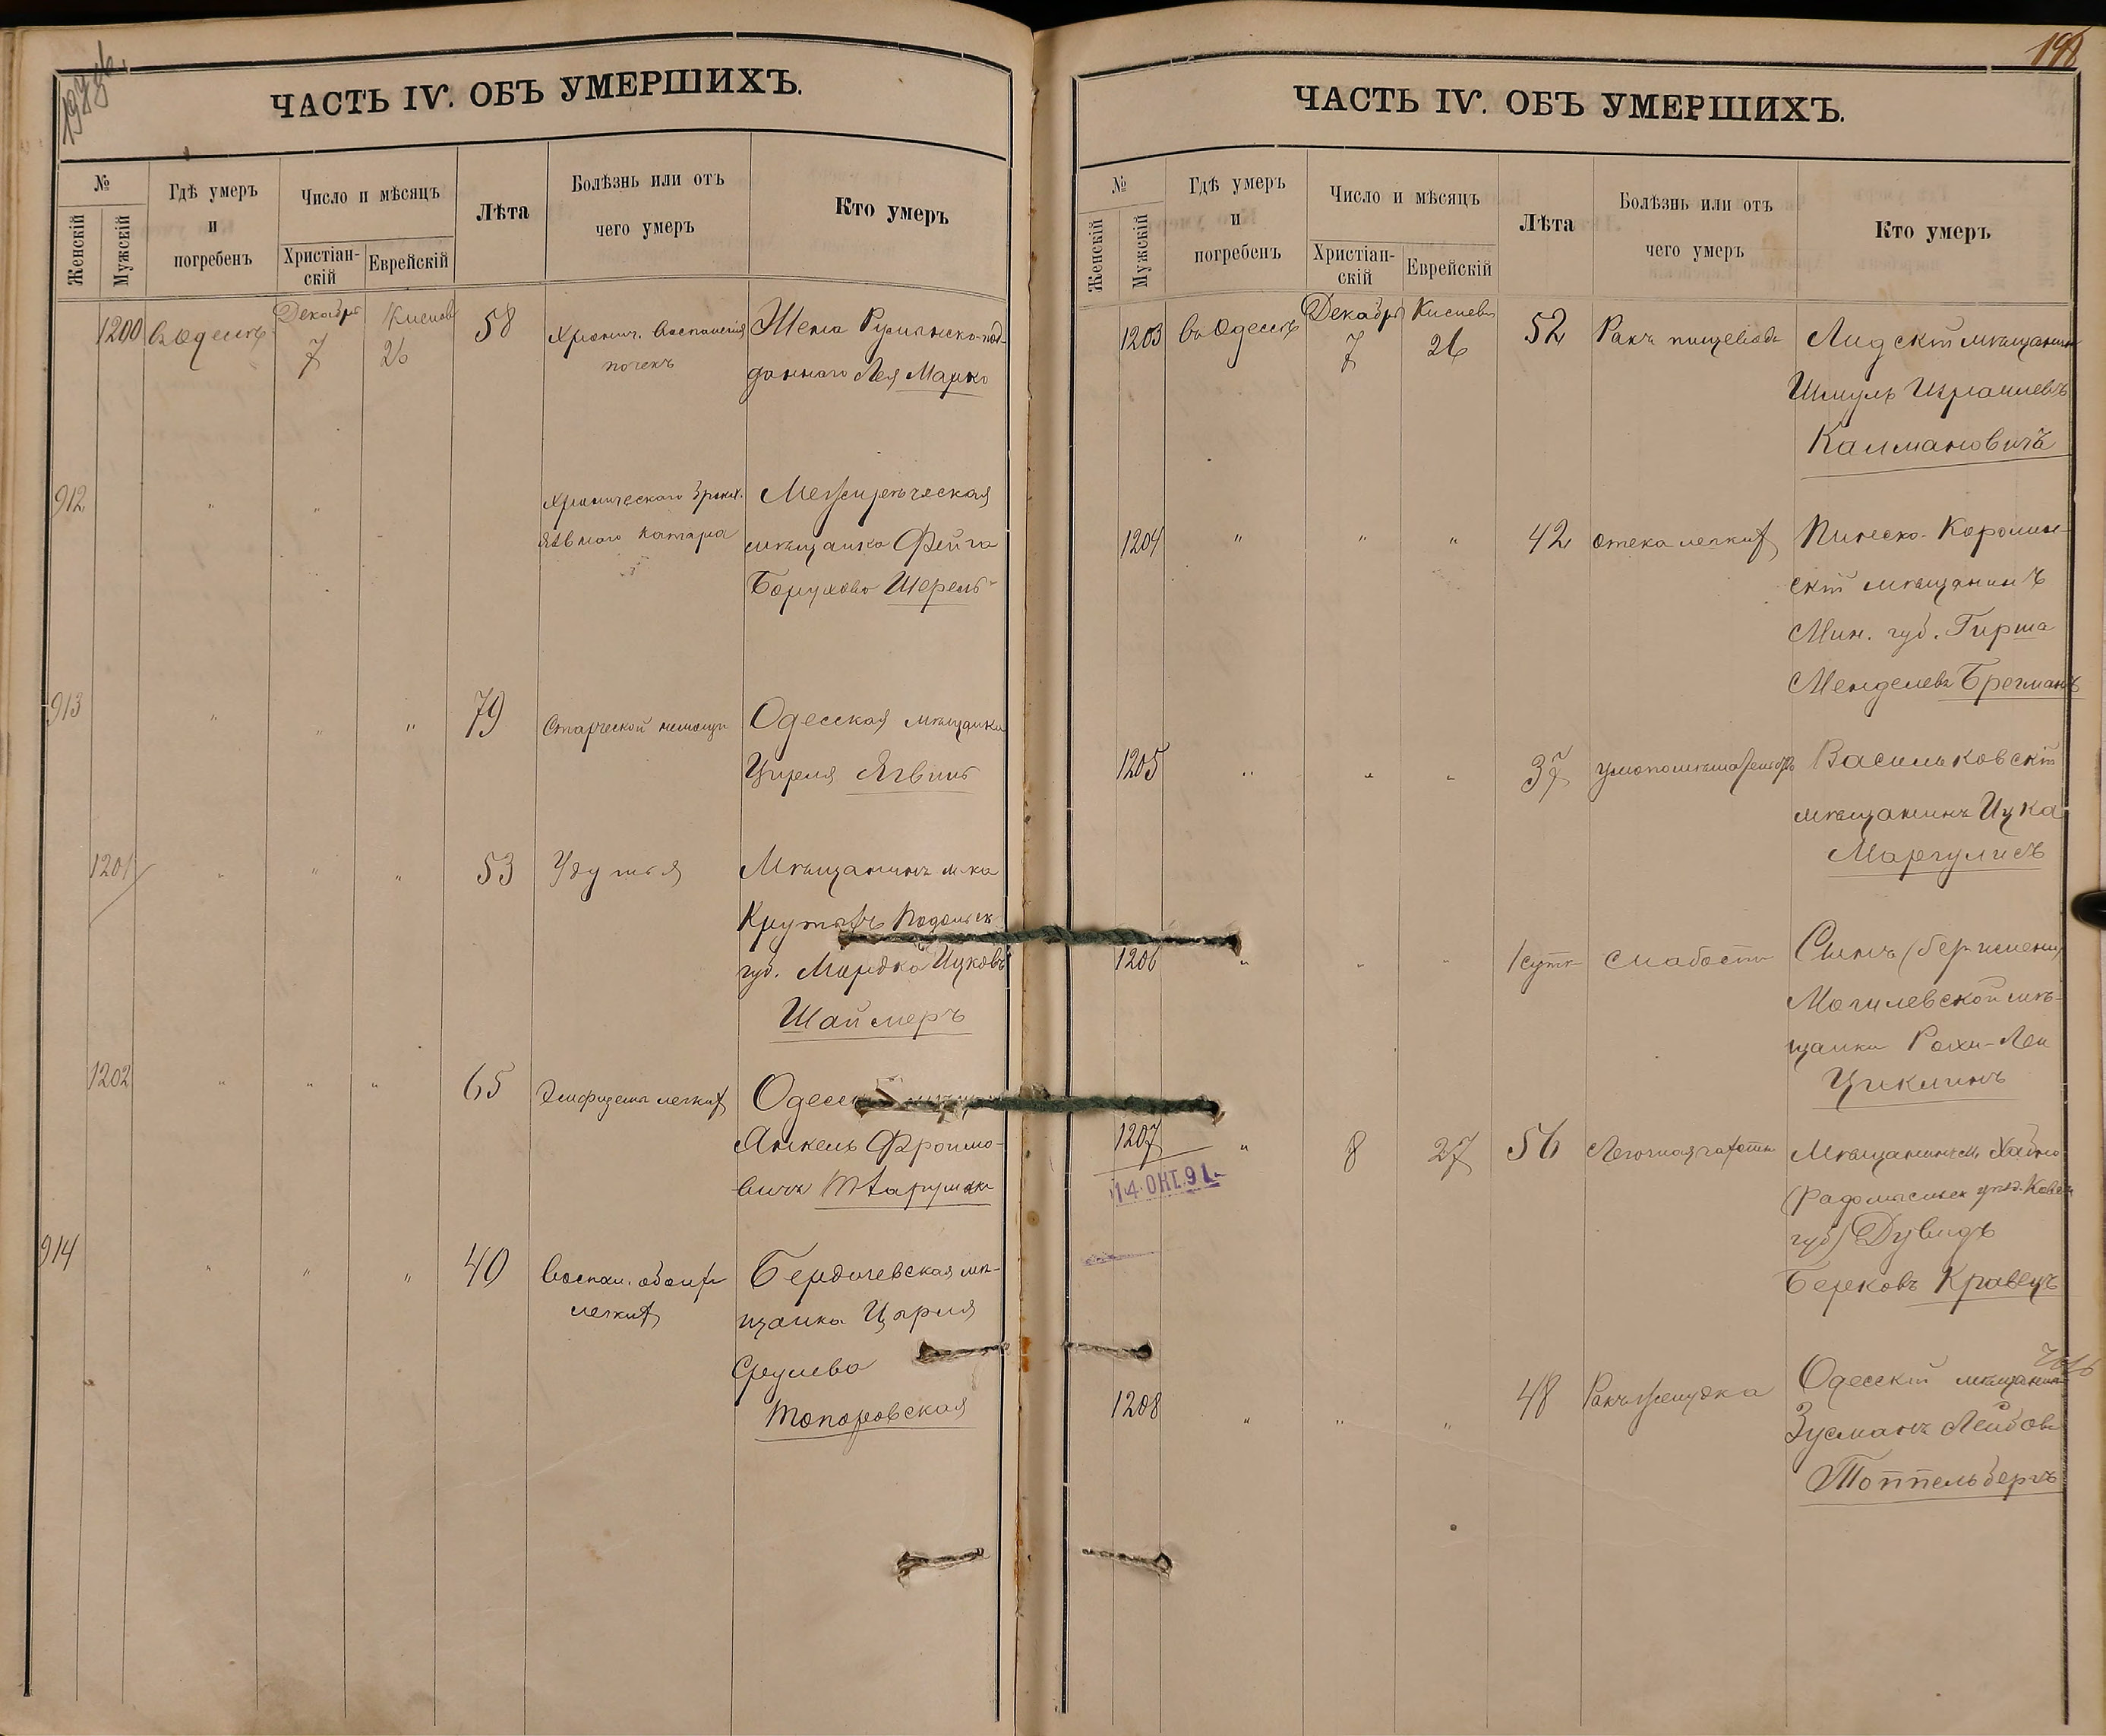 ЧАСТЬ IV. ОБЪ УМЕРШИХЪ.
№
Женскій
Мужскій
Гдѣ умеръ
и
погребенъ
Число и мѣсяцъ
Христіан-
скій
Еврейскій
Лѣта
Болѣзнь или отъ
чего умеръ
Кто умеръ
1200 въ Одессѣ Декабря 7 Кислева 26 58 Хронич. воспаленія
почекъ
Жена Румынско-под-
даннаго Лея Марко
912 " " Хроническаго бронх.
Межирѣческая
мѣщанка Фейга
Борухова Шерель
913 " " " 79 Старческой немощи
Одесская мѣщанка
Циреля
1201 " " " 53 Удушья
Мѣщанинъ м-ка
Крутыхъ Подольск
губ. Мордко Ицковъ
Шаймеръ
1202 " " " 65 Эмфиземы легкихъ
Янкель Фроимо-
вичъ
914 " " " 40 Воспал. обоихъ
легкихъ
Бердичевская мѣ-
щанка Цирля
Срулева
Топоровская
198
ЧАСТЬ IV. ОБЪ УМЕРШИХЪ.
№
Женскій
Мужскій
Гдѣ умеръ
и
погребенъ
Число и мѣсяцъ
Христіан-
скій
Еврейскій
Лѣта
Болѣзнь или отъ
чего умеръ
Кто умеръ
1203 въ Одессѣ Декабря 7 Кислева 26 52 Ракъ пищевода
Лидскій мѣщанинъ
Шмуль Израилевъ
Калмановичъ
1204 " " " 42 Отека легкихъ
Пинско-Каролин-
скій мѣщанинъ
Мин. губ. Гирша
Менделевъ Брегманъ
1205 " " " 37
Васильковскій
мѣщанинъ Ицка
Маргулисъ
1206 " " " 1 сутк Слабости
Сынъ (безъ имени)
Могилевской мѣ-
щанки Рохи-Леи
Цикминъ
1207 " 8 27 56 Легочная чахотка
14.ОКТ.91
Мѣщанинъ м. Хабно
губ) Дувидъ
Берковъ Кравецъ
1208 " " " 48 Ракъ желудка
Одесскій мѣщанинъ
Зусманъ Лейбовъ
Топпельбергъ